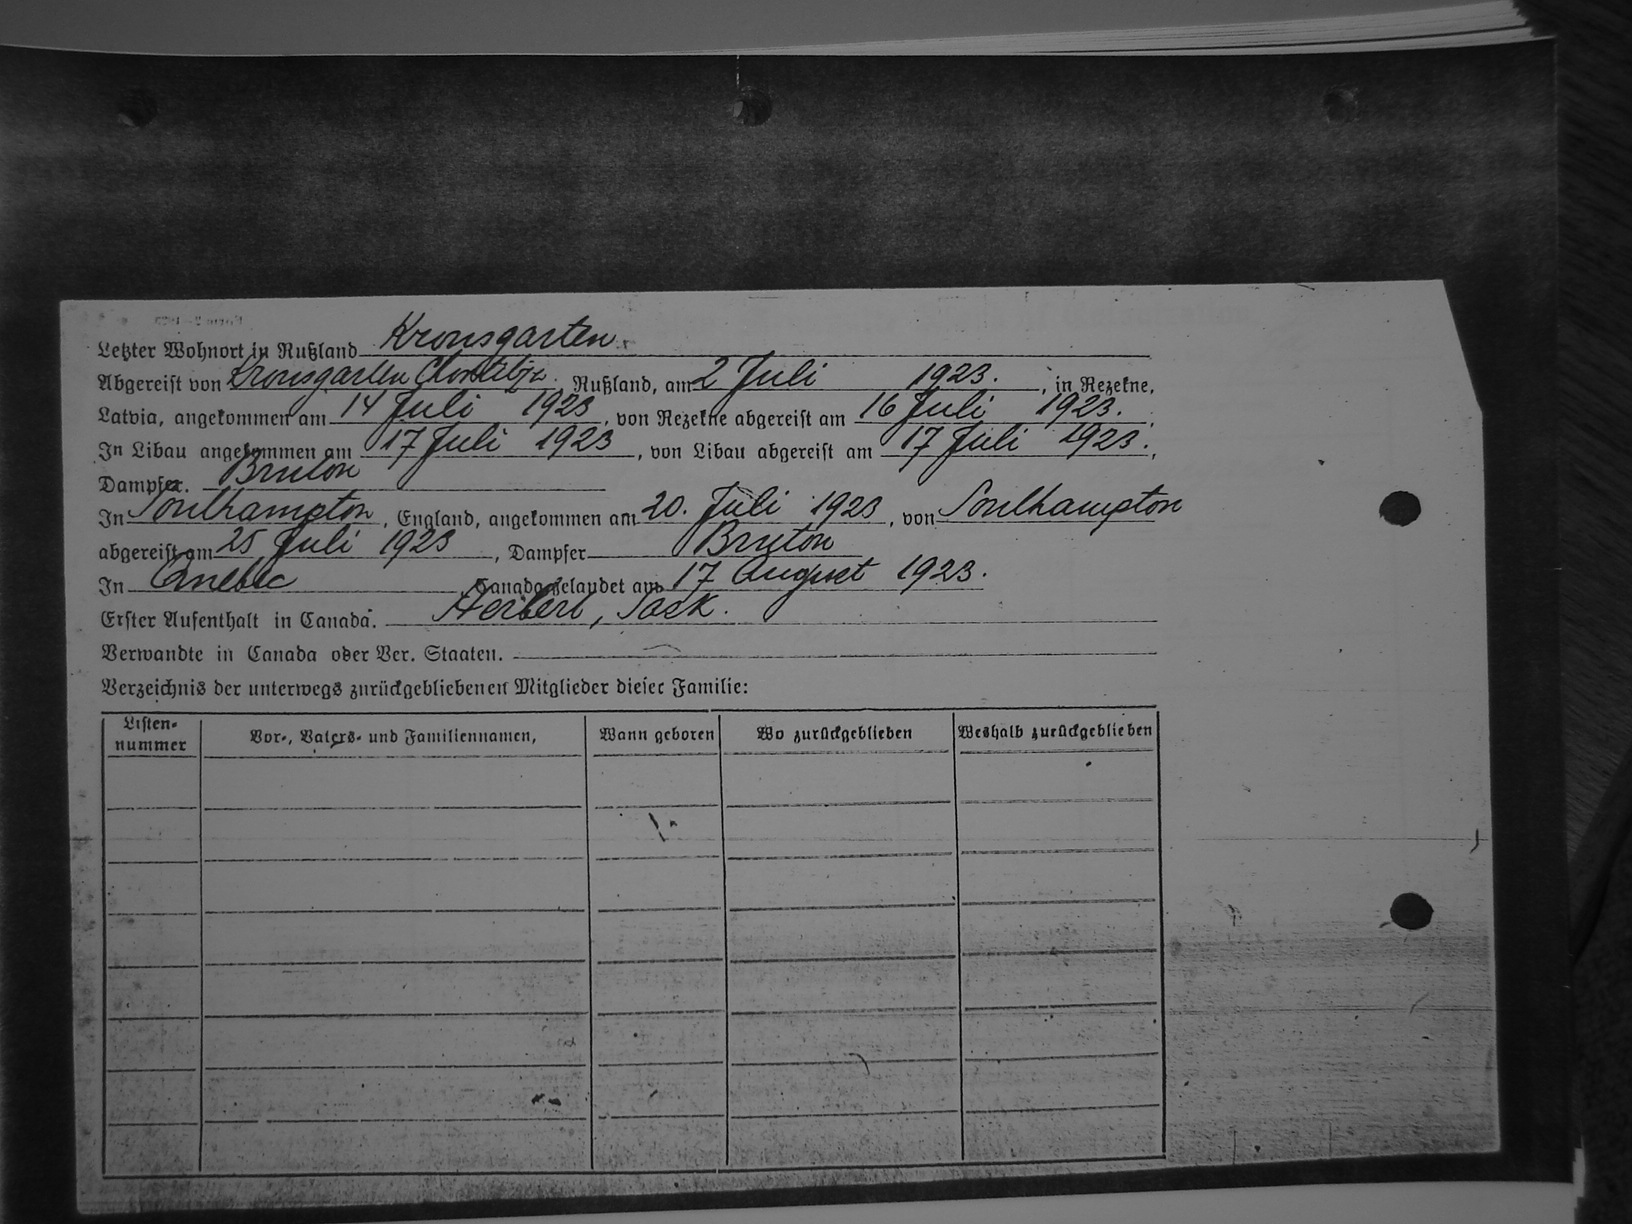 Letzter Wohnort in Rußland Kronsgarten
Abgereist von Kronsgarten Chortitza, Rußland, am 2 Juli 1923., in Rezekne,
Latvia, angekommen am 14 Juli 1923, von Rezekne abgereist am 16 Juli 1923.
In Libau angekommen am 17 Juli 1923, von Libau abgereist am 17 Juli 1923.,
Dampfer. Bruton
In Southampton, England, angekommen am 20. Juli 1923, von Southampton
abgereist am 25 Juli 1923, Dampfer Bruton
In Quebec, Canada gelandet am 17 August 1923.
Erster Aufenthalt in Canada. Herbert, Sask.
Verwandte in Canada oder Ver. Staaten.
Verzeichnis der unterwegs zurückgebliebenen Mitglieder dieser Familie:
Listen-nummer Vor-, Vaters- und Familiennamen, Wann geboren Wo zurückgeblieben Weshalb zurückgeblieben